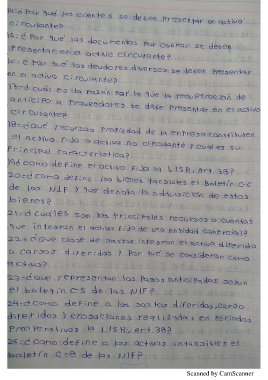 14-¿Por qué los clientes se deben Presentar en activo
circulante?
15-¿Por qué los documentos Por cobrar se deben
Presentar en el activo circulante?
16-¿Por qué los deudores diversos se deben Presentar
en el activo circulante?
17-¿cuál es la razón Por la que la Presentación de
anticipo a Proveedores se debe Presentar en el activo
circulante?
18-¿qué recursos Propiedad de la empresa constituyen
el activo fijo o activo no circulante y cual es su
Principal característica?
19-¿cómo define el activo fijo la LISR, Art. 38?
20-¿cómo define los bienes tangibles el Boletín C-6
de las NIF y que denota la adquisición de estos
bienes?
21-¿cuáles son los Principales recursos o cuentas
que integran el activo fijo de una entidad comercial?
22-¿que clase de gastos integran el activo diferido
o cargos diferidos y Por qué se consideran como
activo?
23-¿que representan los Pagos anticipados según
el boletín C-5 de las NIF?
24-¿como define a los gastos diferidos, cargos
diferidos y erogaciones realizadas en Periodos
Preoperativos la LISR, Art. 38?
25-¿como define a los activos intangibles el
boletín C-8 de las NIF?
Scanned by CamScanner